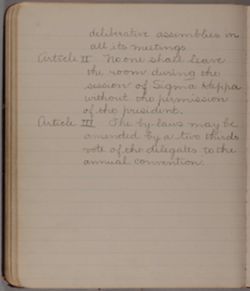 deliberative assemblies in
all its meetings.
Article II No one shall leave
the room during the
session of Sigma Kappa
without the permission
of the president.
Article III The by-laws may be
amended by a two thirds
vote of the delegates to the
annual convention.